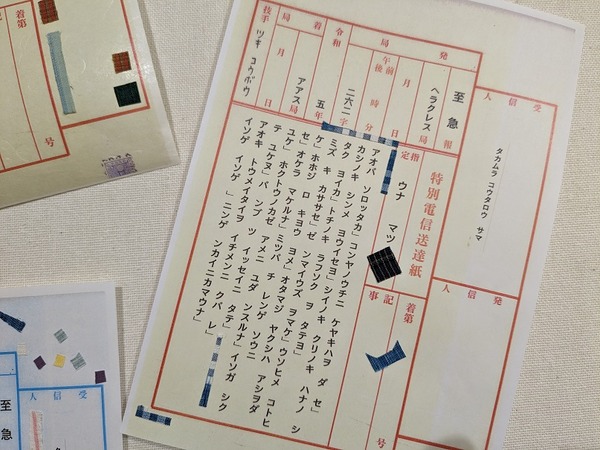 受信人
タカムラ コウタロウ サマ
発信人
特別電信送達紙
至急報
発局
ヘラクレス局
月 日
午前
午後 時 分
二六二字
着局
令和 五年
アアス局
月 日
技手 ツキ コウボウ
着第 号
記事
指定
ウナ マツ
アオバ ソロッタカ」コンヤノウチニ ケヤキハヲ ダセ」
カシノキ シンメ ヨウイセヨ」シイノキ クリノキ ハナノ シ
タク ヨイカ」トチノキ ラフソク ヲ タテヨ」
ミズキ カササセ」ゼンマイウズ ヲマケ」ウソヒメ コトヒ
ケ」ホホジロ キヨウ ヨメ」オタマジヤクシハ アシヲダ
セ」オケラ マケルナ」ミツバチ レンゲソウニ
ユケ」ホクトウノカゼ アメニ ユダンスルナ」イソガシク
テ ユケヌ」バンブツ イッセイニ タテ」
アオキ トウメイタイヲ イチメンニ クバレ」
イソゲ イソゲ 」ニンゲンカイニカマウナ」
着第 号
受信
至急